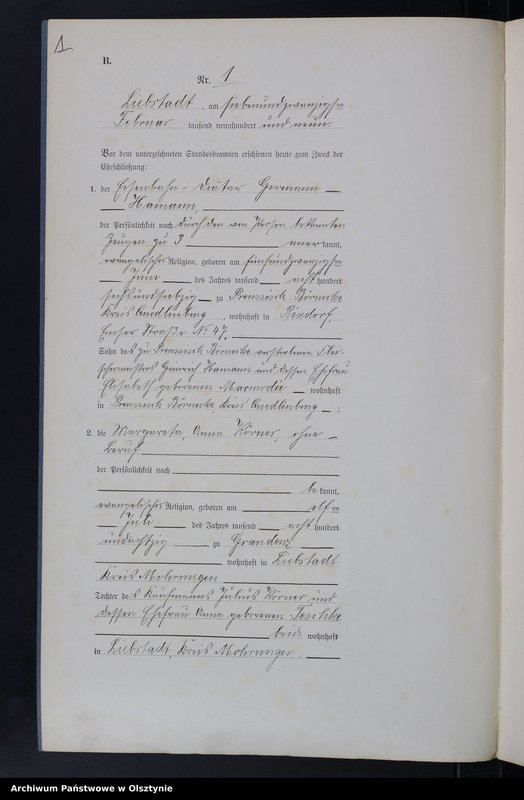 1
B.
Nr. 1
Liebstadt, am siebenundzwanzigsten
Februar tausend neunhundert und neun.
Vor dem unterzeichneten Standesbeamten erschienen heute zum Zweck der
Eheschließung:
1. der Eisenbahn-Diätar Hermann
Hamann,
der Persönlichkeit nach durch den von Person bekannten
Zeugen zu 3 anerkannt,
evangelischer Religion, geboren am fünfundzwanzigsten
Juni des Jahres tausend achthundert
sechsundsiebzig zu Preussisch Börnecke
Kreis Quedlinburg, wohnhaft in Rixdorf,
Emser Straße No 47,
Sohn des zu Preussisch Börnecke verstorbenen Flei-
schermeisters Heinrich Hamann und dessen Ehefrau
Elisabeth geborenen wohnhaft
in Preussisch Börnecke Kreis Quedlinburg;
2. die Margarete, Anna Körner, ohne
Beruf
der Persönlichkeit nach
bekannt,
evangelischer Religion, geboren am elften
Juli des Jahres tausend achthundert
undachtzig zu Graudenz
, wohnhaft in Liebstadt
Kreis Mohrungen
Tochter des Kaufmanns Julius Körner und
dessen Ehefrau Anna geborenen Teschke
beide wohnhaft
in Liebstadt, Kreis Mohrungen.
Archiwum Państwowe w Olsztynie